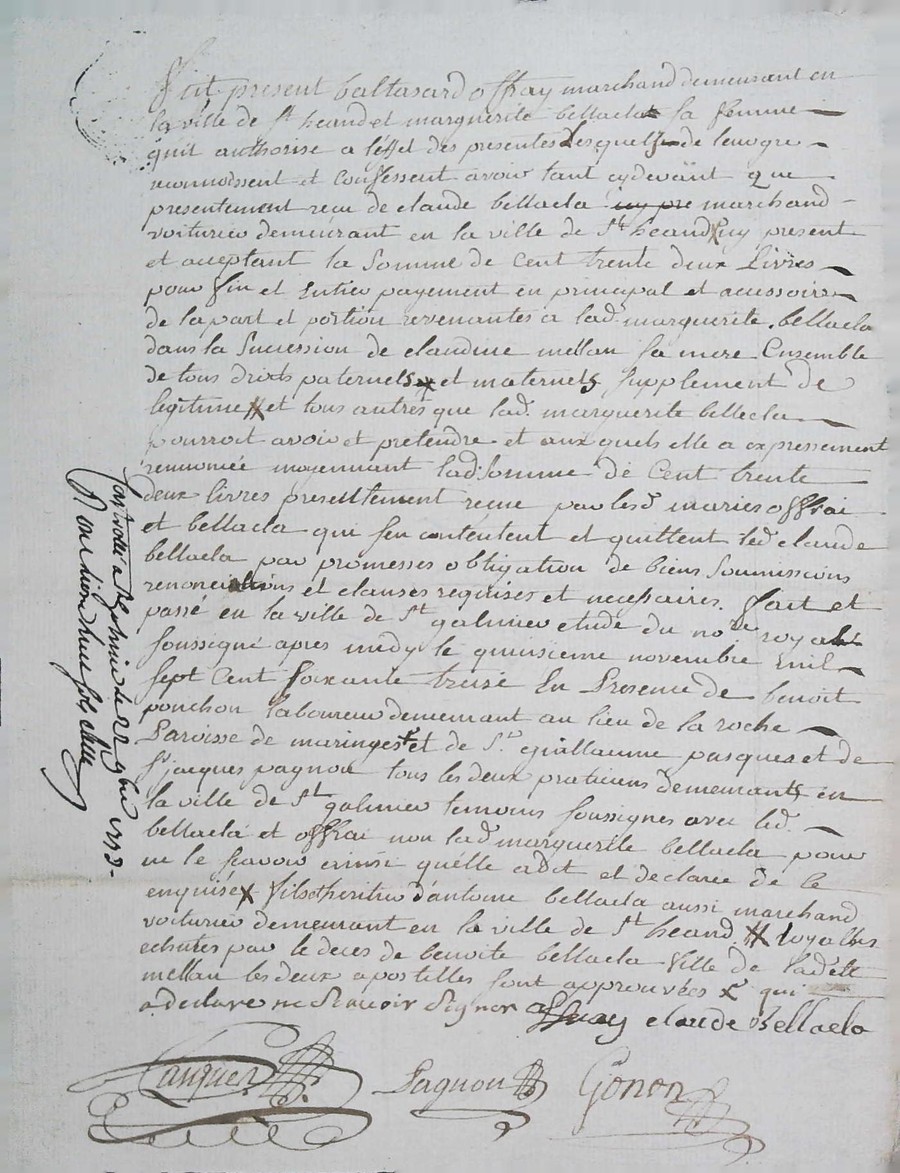 fut present baltasard offray marchand demeurant en
la ville de st heand et marguerite bellacla sa femme
quil authorise a l'effet des presentes lesquels de leur gre
reconnoissent et confessent avoir tant cydevant que
presentement recu de claude bellacla marchand
voiturier demeurant en la ville de st heand X icy present
et acceptant la somme de cent trente deux Livres
pour fin et entier payement en principal et accessoires
de la part et portion revenantes a lad. marguerite bellacla
dans la succession de claudine mellan sa mere Ensemble
de tous droits paternels X et maternels supplement de
legitime XX et tous autres que lad. marguerite bellacla
pourroit avoir et pretendre et aux quels elle a expressement
renoncée moyennant lad. somme de cent trente
deux livres presentement reçue par lesd maries offrai
et bellacla qui s'en contentent et quittent led claude
bellacla par promesses obligation de biens soumissions
renonciations et clauses requises et necessaires. fait et
passé en la ville de st galmier etude du nore royal
soussigné apres midy le quinsieme novembre mil
sept cent soixante treize En presence de benoit
ponchon laboureur demeurant au lieu de la roche
Paroisse de maringes et de Sr guillaume pasques et de
sr jacques pagnon tous les deux praticiens demeurants en
la ville de st galmier temoins soussignes avec led.
bellacla et offrai non lad marguerite bellacla pour
ne le scavoir ainsi qu'elle a dit et declaree de ce
enquise X fils et heritier d'antoine bellacla aussi marchand
voiturier demeurant en la ville de st heand. XX loyalles
echutes par le deces de benoite bellacla fille de lad
mellan les deux apostilles sont approuvées qui
a declare ne scavoir signer offray claude Bellacla
Pagnon Gonon
Controllé a St Galmier le 9bre 1773